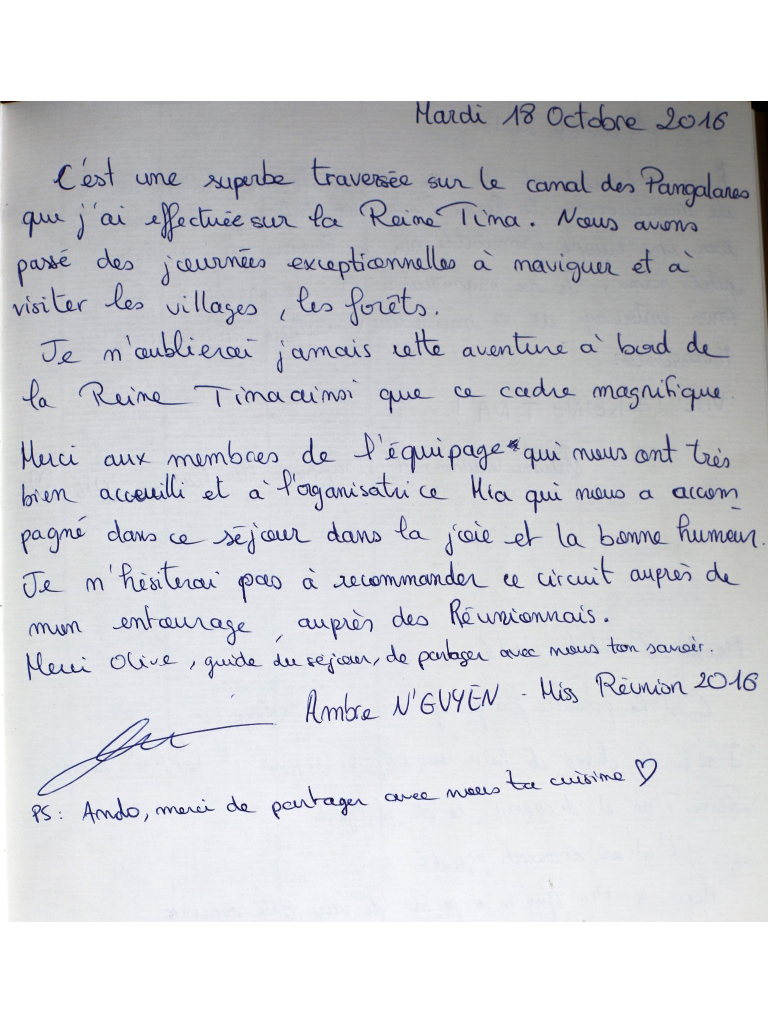 Mardi 18 Octobre 2016
C'est une superbe traversée sur le canal des Pangalanes
que j'ai effectuée sur la Reine Tina. Nous avons
passé des journées exceptionnelles à naviguer et à
visiter les villages, les forêts.
Je n'oublierai jamais cette aventure à bord de
la Reine Tina ainsi que ce cadre magnifique.
Merci aux membres de l'équipage qui nous ont très
bien acceuilli et à l'organisatrice Mia qui nous a accom
pagné dans ce séjour dans la joie et la bonne humeur.
Je n'hésiterai pas à recommander ce circuit auprès de
mon entourage, auprès des Réunionnais.
Merci Olive, guide du séjour, de partager avec nous ton savoir.
Ambre N'GUYEN - Miss Réunion 2016
PS: Ando, merci de partager avec nous ta cuisine ♡